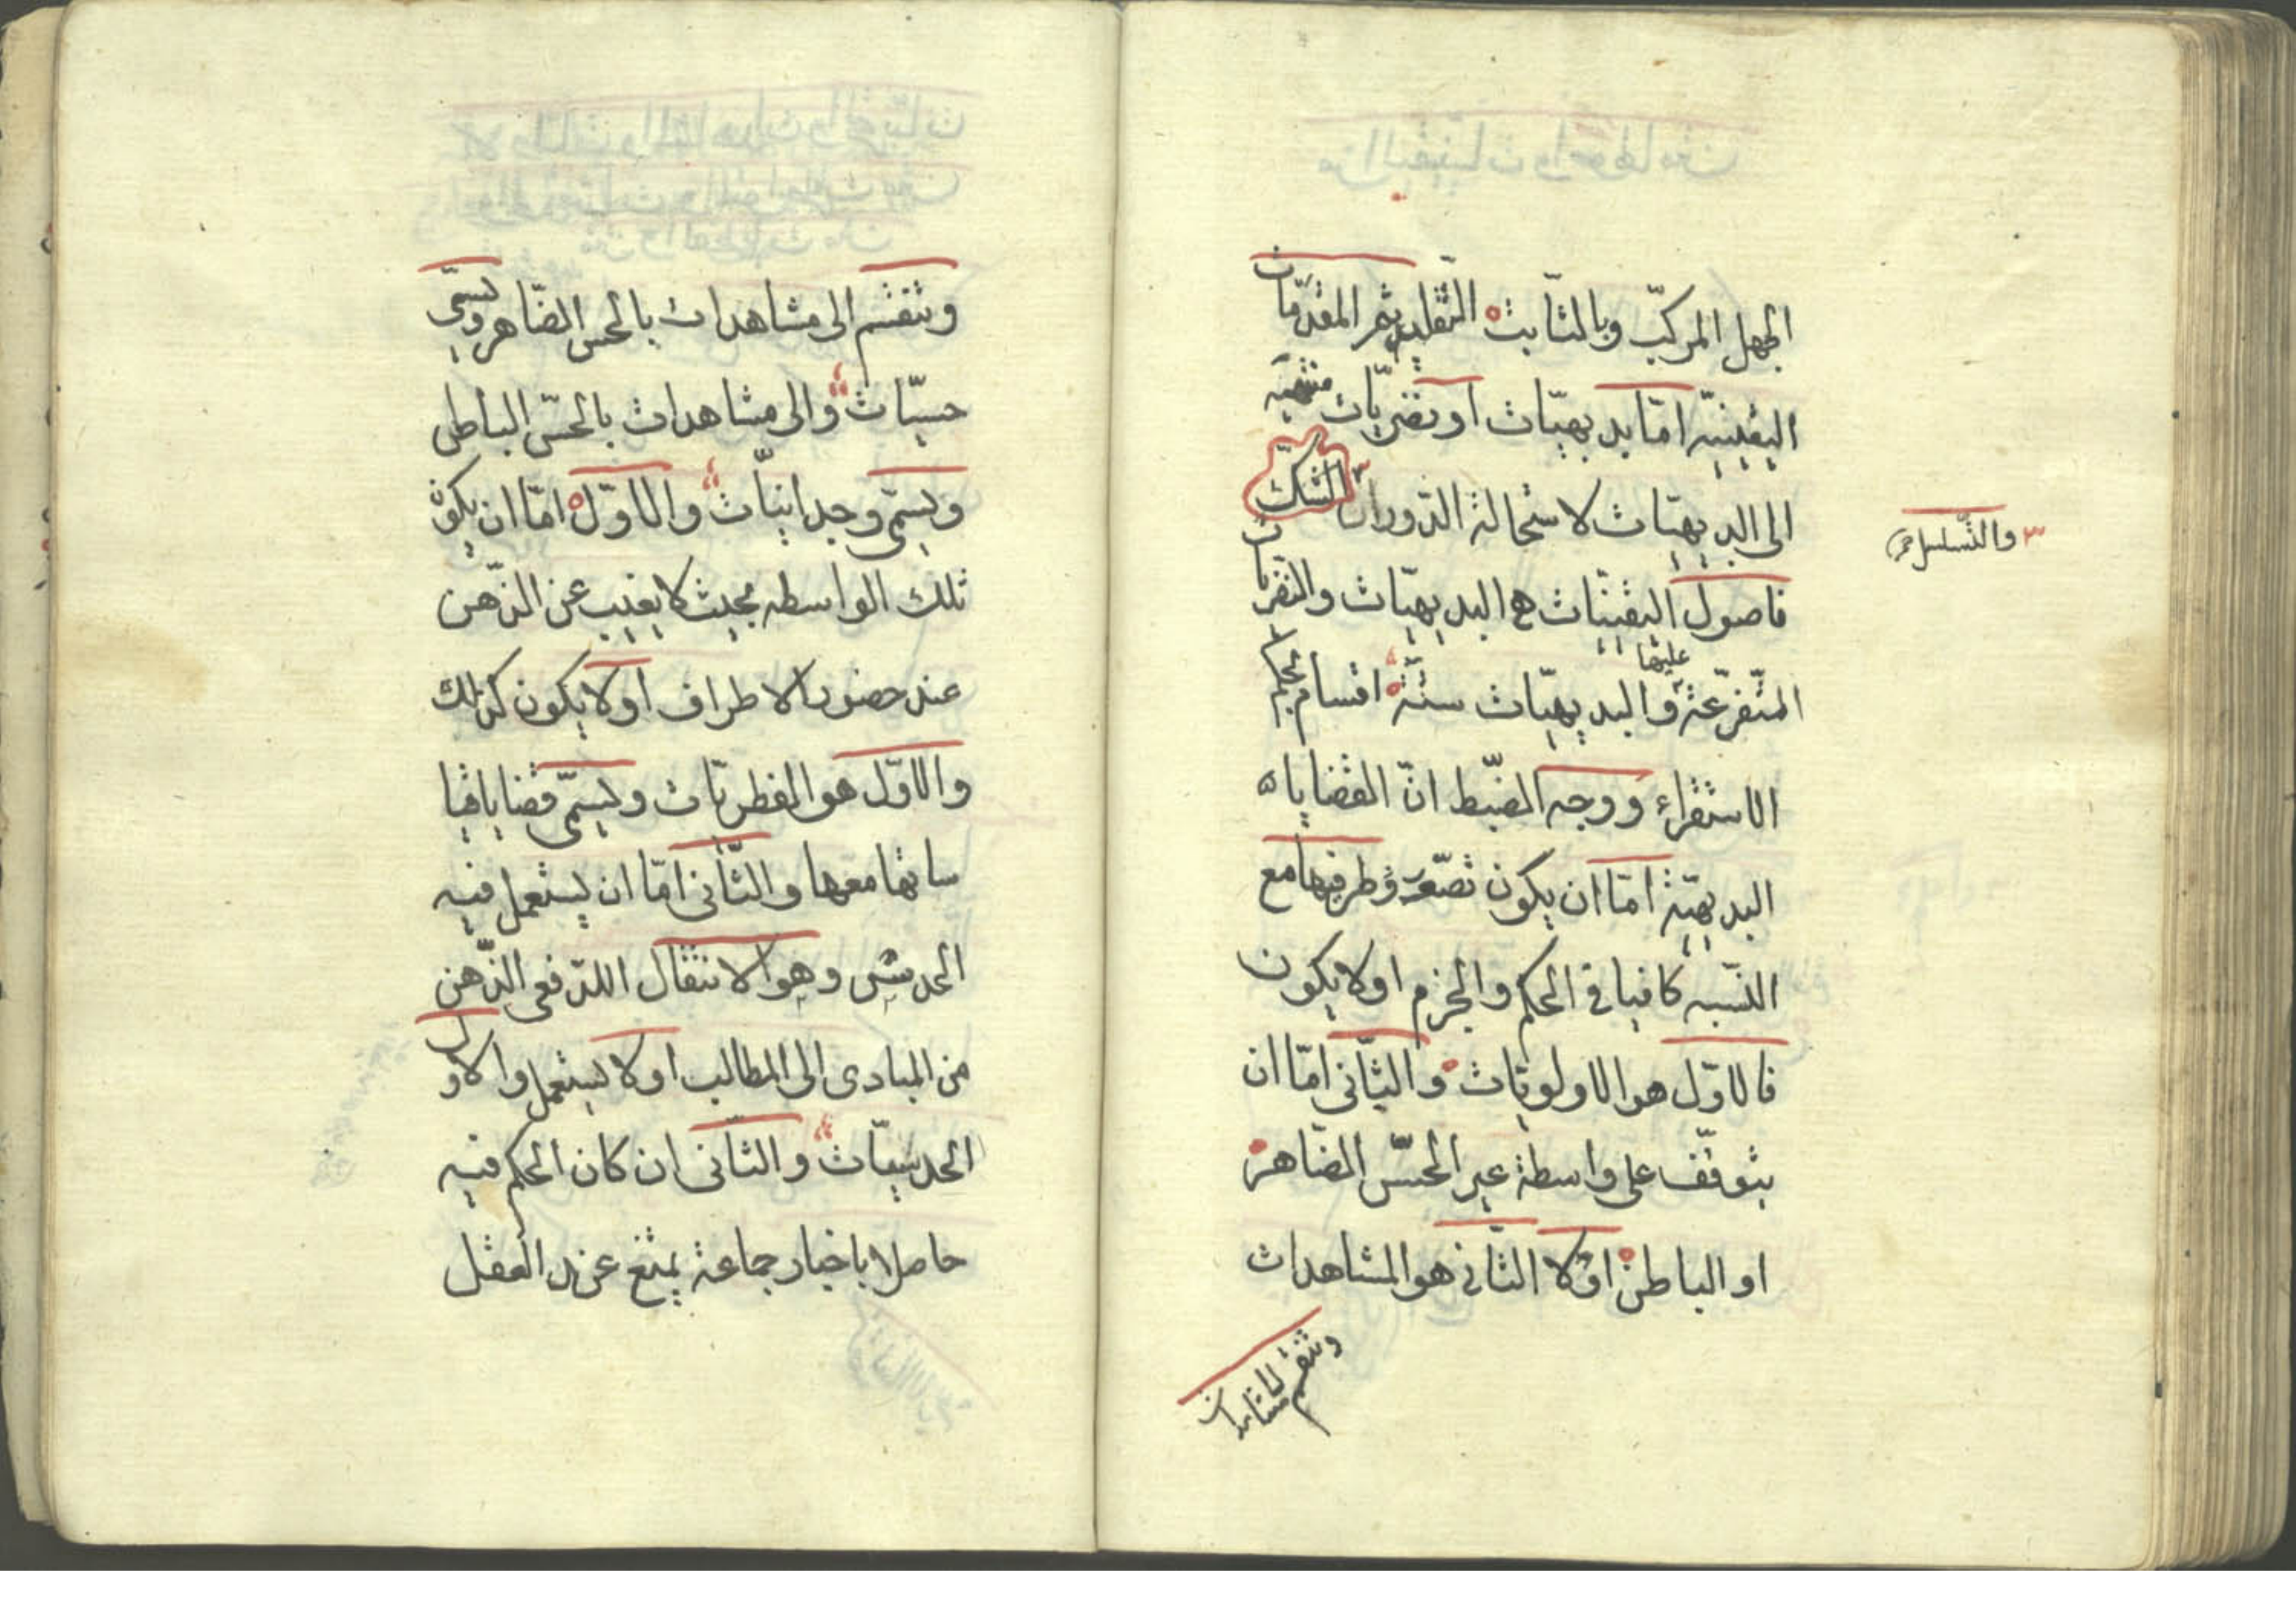 الجهل المركّب وبالثّابت التّقليد ثم المقدّمات
اليقينيّه امّا بديهيّات او نضريّات منتهيه
الى البديهيّات لاستحالة الدّور او الشّكّ
والتّسلسل صح
فاصول اليقينيّات هى البديهيّات والنّضريات
المتفرّعة عليها والبديهيّات ستّة اقسام بحكم
الاستقراء ووجه الضّبط انّ القضايا
البديهيّة امّا ان يكون تصّور طرفيها مع
النّسبه كافيا فى الحكم والجزم او لا يكون
فالاوّل هو الاولويّات والثّانى امّا ان
يتوقّف على واسطة غير الحسّ الضّاهر
او الباطن او لا الثّانى هو المشاهدات
وتنقسم الى مشاهدات
وتنقسم الى مشاهدات بالحس الضّاهر ويسمّى
حسيّات والى مشاهدات بالحسّ الباطن
ويسمّى وجدانيّات والاوّل امّا ان يكون
تلك الواسطه بحيث لا يغيب عن الذّهن
عند حضور الاطراف او لا يكون كذلك
والاوّل هو الفطريّات ويسمّى قضايا قيا
ساتها معها والثّانى امّا ان يستعمل فيه
الحدس وهو الانتقال الدّفعى الذّهن
من المبادى الى المطالب او لا يستعمل والاوّل
الحدسيّات والثّانى ان كان الحكم فيه
حاصلا باخبار جماعة يمتنع عند العقل